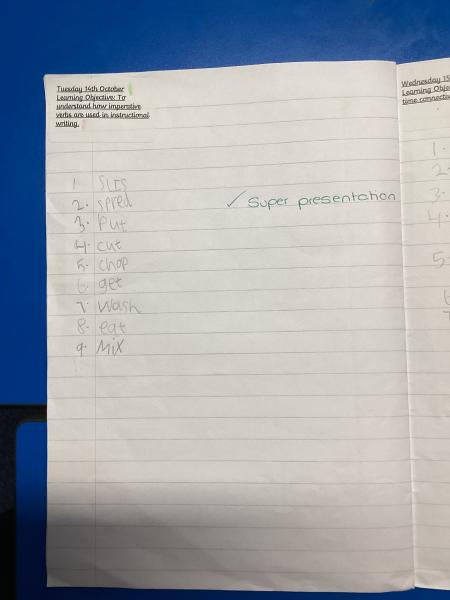 Tuesday 14th October
Learning Objective: To
understand how imperative
verbs are used in instructional
writing.
1.
2. spred
✓ Super presentation
3. Put
4. cut
5. chop
6. get
7. Wash
8. eat
9. Mix
Wednesday 15
Learning Obje
time connectiv
1.
2.
3.
4.
5.